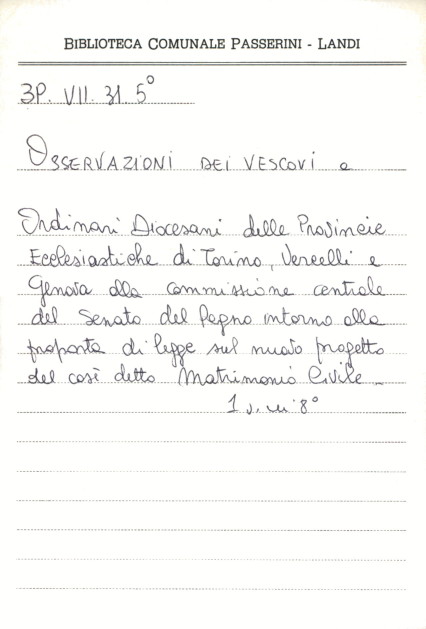 BIBLIOTECA COMUNALE PASSERINI - LANDI
3P. VII. 31. 5°
OSSERVAZIONI DEI VESCOVI e
Ordinari Diocesani delle Provincie
Ecclesiastiche di Torino, Vercelli e
Genova alla commissione centrale
del Senato del Regno intorno alla
proposta di legge sul nuovo progetto
del così detto Matrimonio Civile
1 v. in 8°